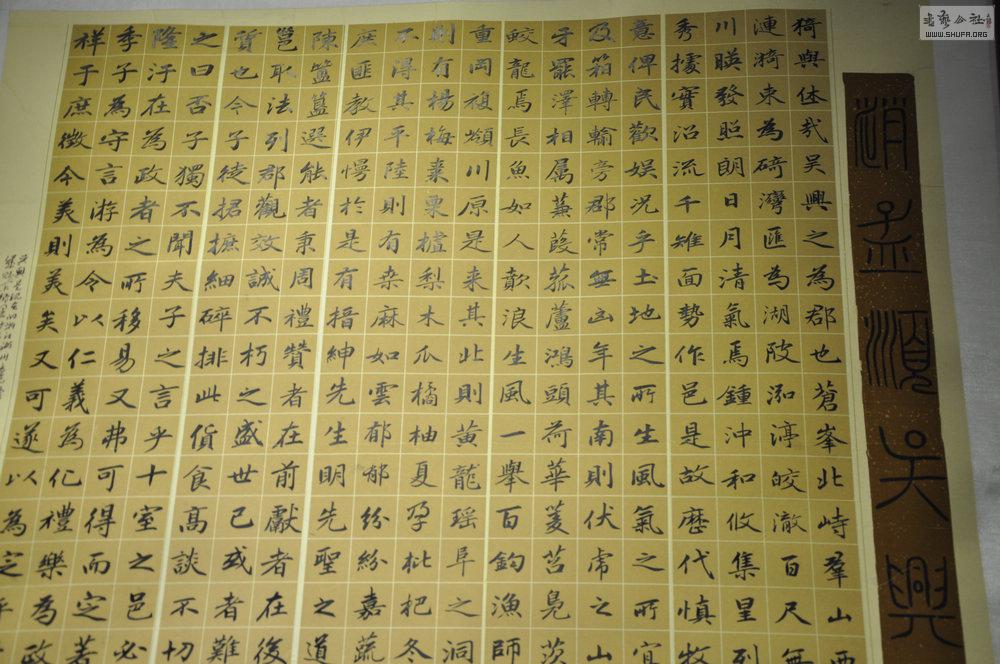 趙孟頫吳興
猗與休哉吳興之為郡也蒼峯北峙羣山西
漣漪束為碕灣匯為湖陂泓渟皎澈百尺無
川暎發照朗日月清氣焉鍾沖和攸集星列
秀據實沿流千雉面勢作邑是故歷代慎牧
意俾民歡娛況乎土地之所生風氣之所宜
及箱轉輸旁郡常無凶年其南則伏虎之山
牙羅澤相属蒹葭菰蘆鴻頭荷華菱苕鳧茨
鮫龍焉長魚如人歕浪生風一舉百鈞漁師
重岡複頌川原是来其此則黃龍瑶阜之洞
則有楊梅棗栗樝梨木瓜橘柚夏孕枇杷冬
不得其平陸則有桒麻如雲郁郁紛紛嘉蔬
庶匪教伊慢於是有搢紳先生明先聖之道
陳簠簋選能者秉周禮贊者在前獻者在後
邕取法列郡觀效誠不朽之盛世已或者難
質也令子徒捃摭細碎排此貨食高談不切
之曰否子子獨不聞夫子之言乎十室之邑必
隆汙在為政者之所移易又弗可得而定著
季子為守言游為令以仁義為化禮樂為政
祥于庶徵今美則美矣又可遂以為定乎
书艺公社
WWW.SHUFA.ORG